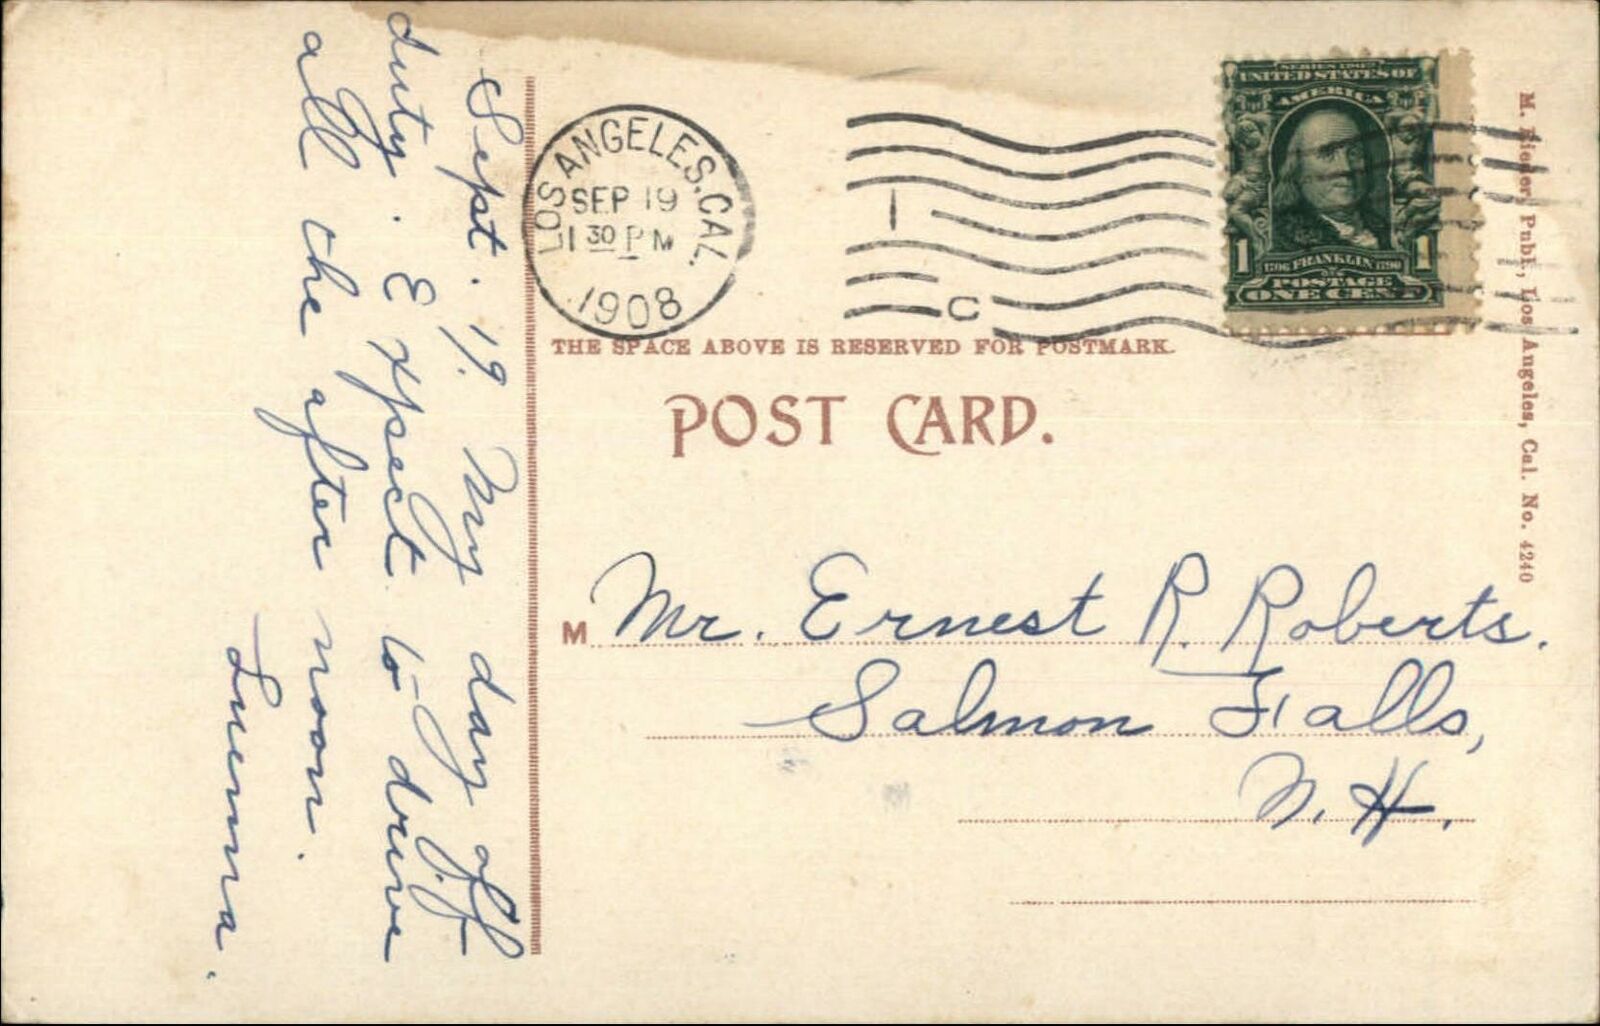 Sept. 19. My day off
duty. Expect to drive
all the after noon.
Luemma.
LOS ANGELES, CAL.
SEP 19
1 30 PM
1908
1
C
SERIES 1902
UNITED STATES OF
AMERICA
1 1
1706 FRANKLIN 1790
POSTAGE
ONE CENT
THE SPACE ABOVE IS RESERVED FOR POSTMARK.
POST CARD.
M Mr. Ernest R. Roberts.
Salmon Falls,
N. H.
M. Rieder, Publ., Los Angeles, Cal. No. 4240